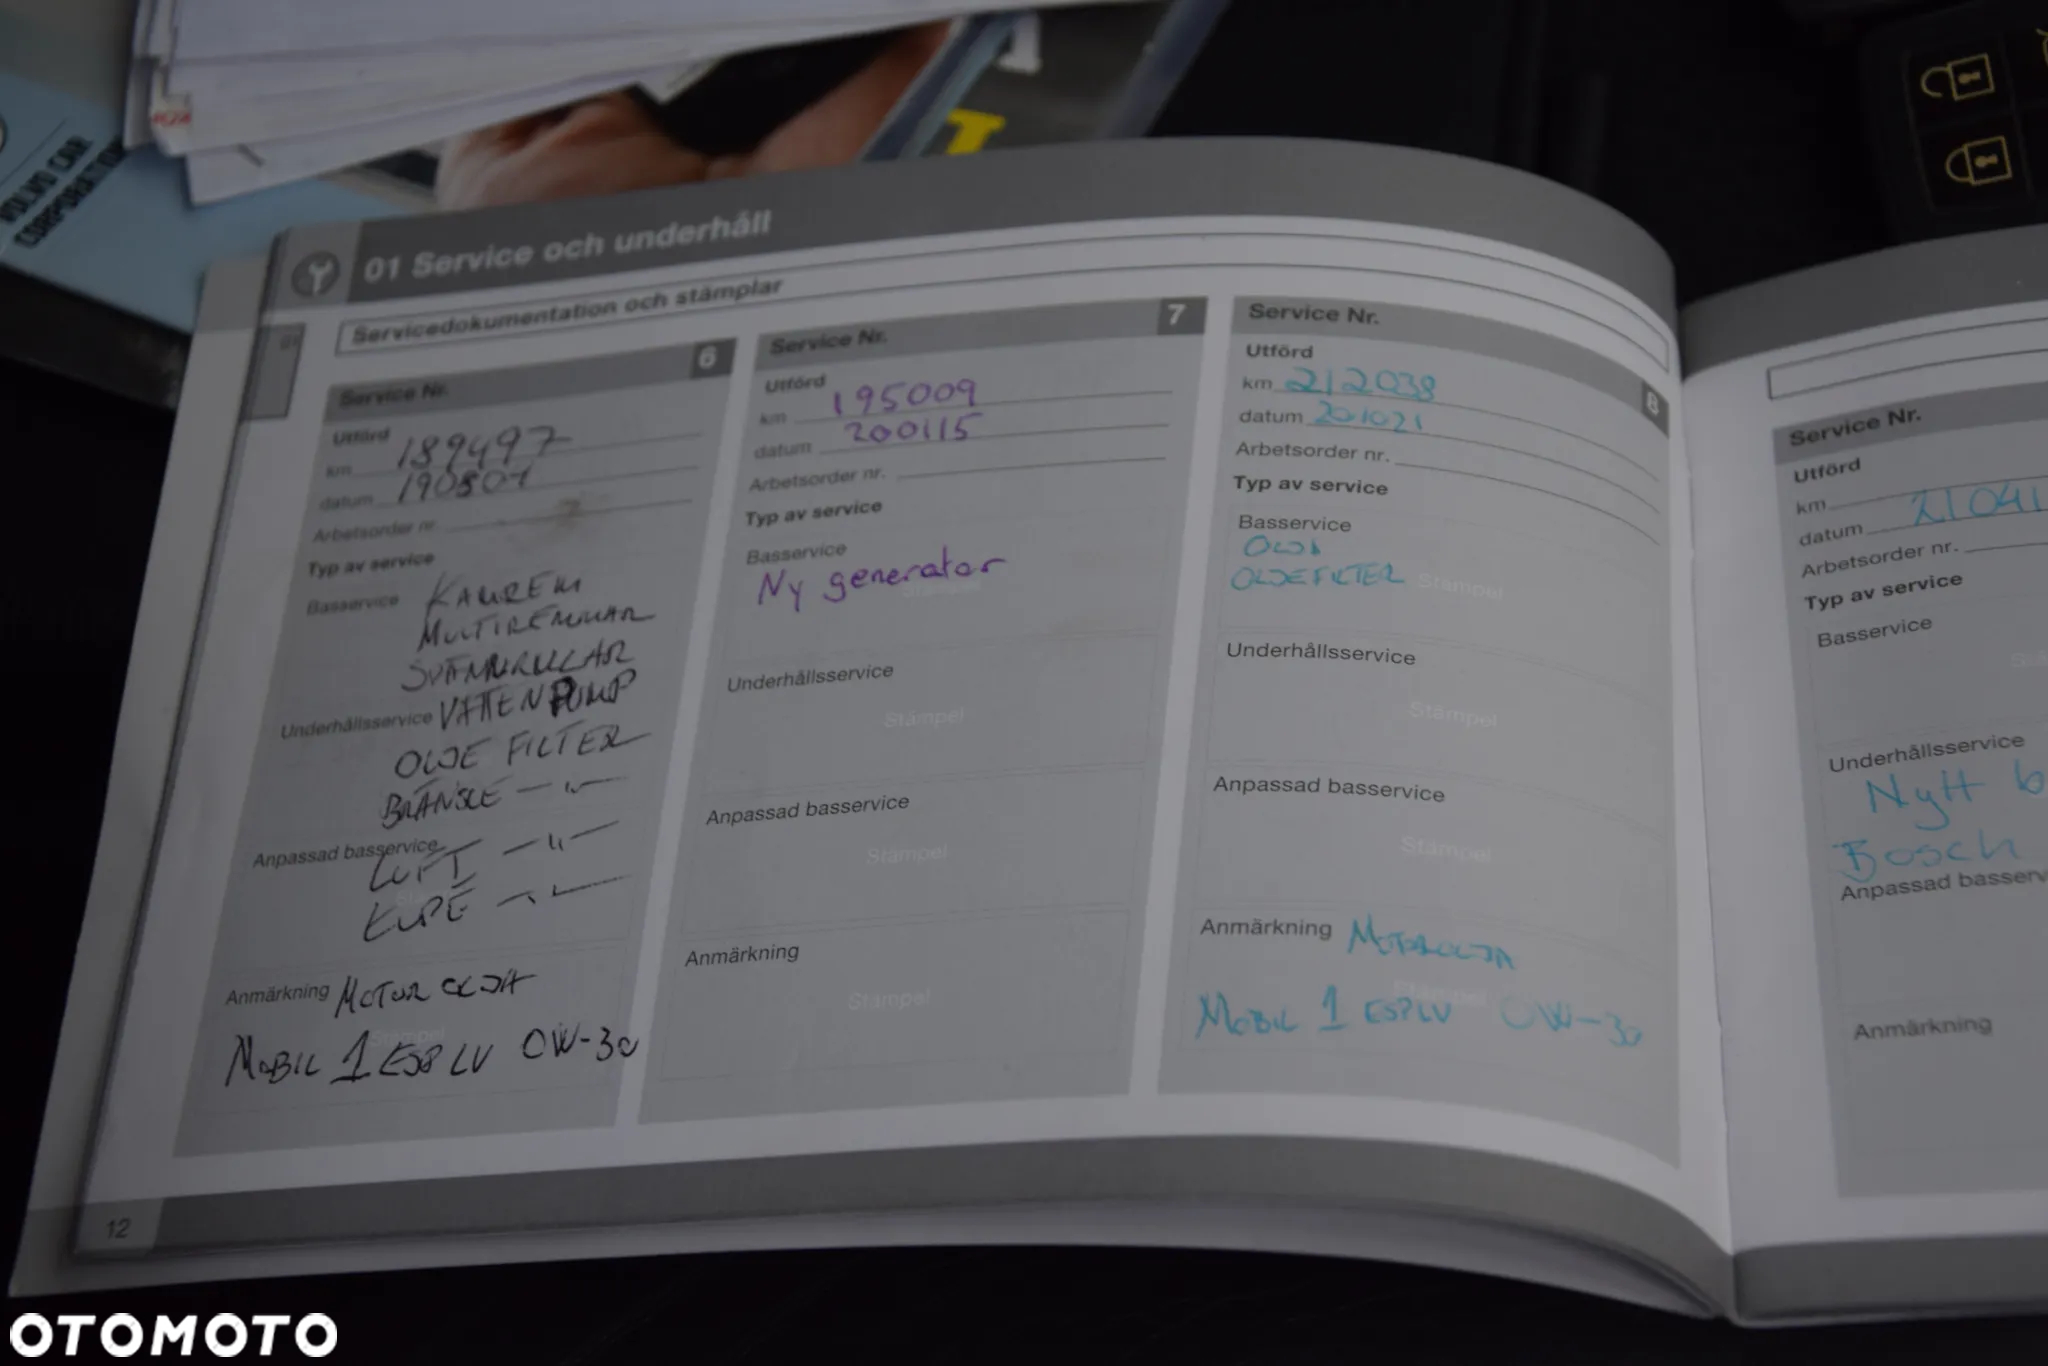 VOLVO CAR
CORPORATION
01 Service och underhåll
01
Servicedokumentation och stämplar
Service Nr. 6
Utförd
km 189497
datum 190801
Arbetsorder nr.
Typ av service
Basservice KAMREM
MULTIREMMAR
SPÄNNRULLAR
Underhållsservice VATTENPUMP
OLJE FILTER
BRÄNSLE —〃—
Anpassad basservice
LUFT —〃—
KUPÉ —〃—
Anmärkning MOTOR OLJA
Stämpel
MOBIL 1 ESP LV 0W-30
12
Service Nr. 7
Utförd
km 195009
datum 200115
Arbetsorder nr.
Typ av service
Basservice
Ny generator
Stämpel
Underhållsservice
Stämpel
Anpassad basservice
Stämpel
Anmärkning
Stämpel
Service Nr. 8
Utförd
km 212038
datum 201021
Arbetsorder nr.
Typ av service
Basservice
OLJA
OLJEFILTER Stämpel
Underhållsservice
Stämpel
Anpassad basservice
Stämpel
Anmärkning MOTOROLJA
Stämpel
MOBIL 1 ESP LV 0W-30
Service Nr.
Utförd
km
datum 21041
Arbetsorder nr.
Typ av service
Basservice
Underhållsservice
Nytt b
Bosch
Anpassad basserv
Anmärkning
OTOMOTO